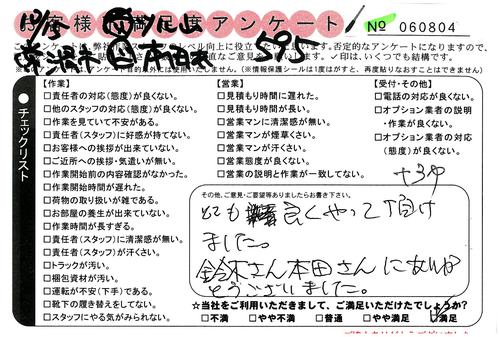 お客様満足度アンケート
№ 060804
チェックリスト
【作業】
□責任者の対応(態度)が良くない。
□他のスタッフの対応(態度)が良くない。
□作業を見ていて不安がある。
□責任者(スタッフ)に好感が持てない。
□お客様への挨拶が出来ていない。
□ご近所への挨拶・気遣いが無い。
□作業開始前の内容確認がなかった。
□作業開始時間が遅れた。
□荷物の取り扱いが雑である。
□お部屋の養生が出来ていない。
□作業時間が長すぎる。
□責任者(スタッフ)に清潔感が無い。
□責任者(スタッフ)が汗くさい。
□トラックが汚い。
□梱包資材が汚い。
□運転が不安(下手)である。
□靴下の履き替えをしてない。
□スタッフにやる気がみられない。
【営業】
□見積もり時間に遅れた。
□見積もり時間が長い。
□営業マンに清潔感が無い。
□営業マンが煙草くさい。
□営業マンが汗くさい。
□営業態度が良くない。
□営業の説明と作業が一致してない。
【受付・その他】
□電話の対応が良くない。
□オプション業者の説明
・作業が良くない。
□オプション業者の対応
(態度)が良くない。
その他、ご意見・ご要望等ありましたらお書き下さい。
とても 良くやって頂け
ました。
鈴木さん本田さんにありが
とうございました。
☆当社をご利用いただきまして、ご満足いただけたでしょうか?
□不満 □やや不満 □普通 □やや満足 □満足